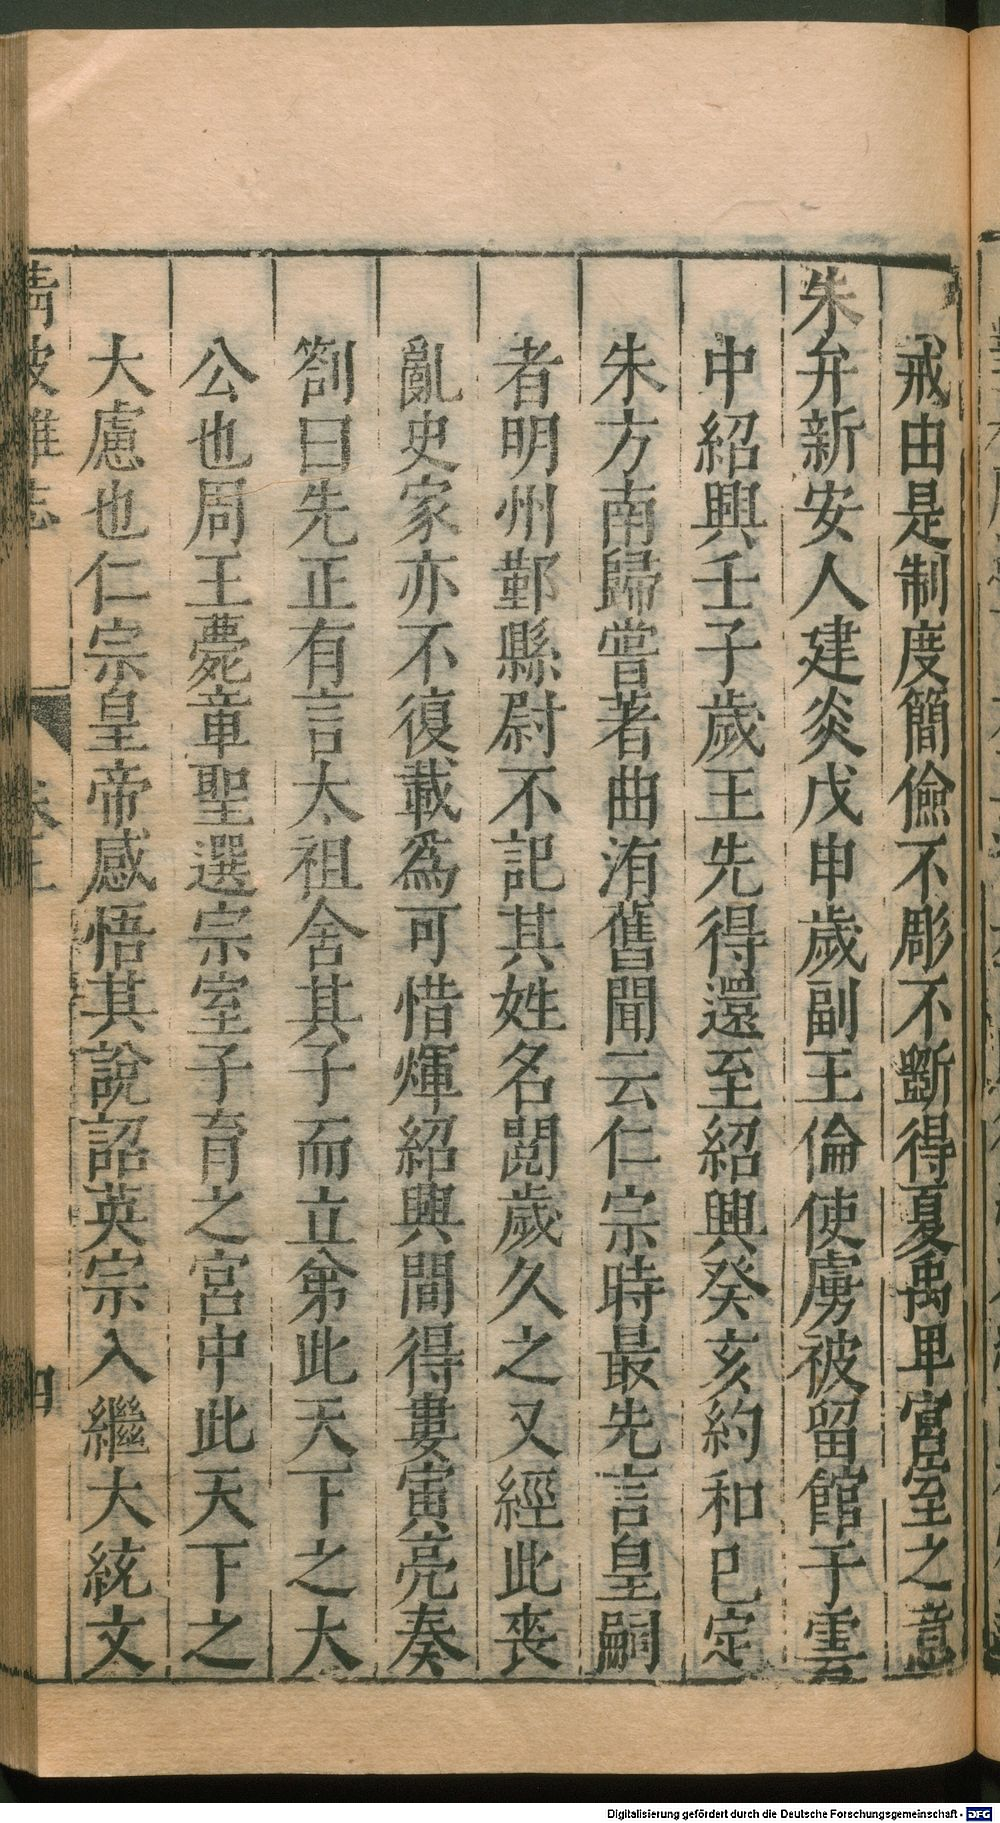 戒由是制度簡儉不彫不斲得夏禹卑宮室之意
朱弁新安人建炎戊申歲副王倫使虜被留館于雲
中紹興壬子歲王先得還至紹興癸亥約和已定
朱方南歸嘗著曲洧舊聞云仁宗時最先言皇嗣
者明州鄞縣尉不記其姓名閱歲久之又經此喪
亂史家亦不復載爲可惜煇紹興間得婁寅亮奏
劄曰先正有言太祖舍其子而立弟此天下之大
公也周王薨章聖選宗室子育之宮中此天下之
大慮也仁宗皇帝感悟其說詔英宗入繼大統文
清波雜志
四
Digitalisierung gefördert durch die Deutsche Forschungsgemeinschaft - DFG